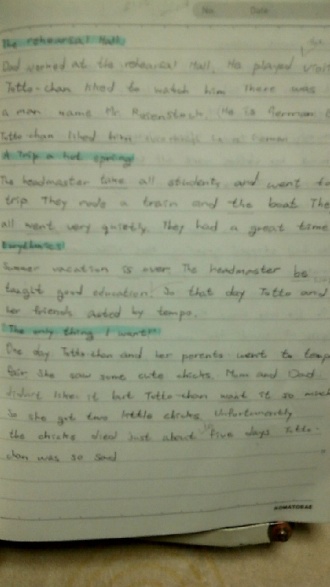 No. Date
The rehearsal Hall
Dad worked at the rehearsal Hall. He played violi
Totto-chan liked to watch him There was
a man name Mr. Rosenstock. He is German
Totto-chan liked him
A Trip a hot spring
The headmaster take all students and went to
trip They rode a train and the boat The
all went very quietly. They had a great time
Eurythmics
Summer vacation is over The headmaster be
taught good education. So that day Totto and
her friends acted by tempo.
"The only thing I want"
One day Totto-chan and her parents went to temp
fair She saw some cute chicks. Mom and Dad
didn't like it but Totto-chan want it so much
So she got two little chicks Unfortunately
the chicks died Just about five days Totto-
chan was so sad
KOMATORAE